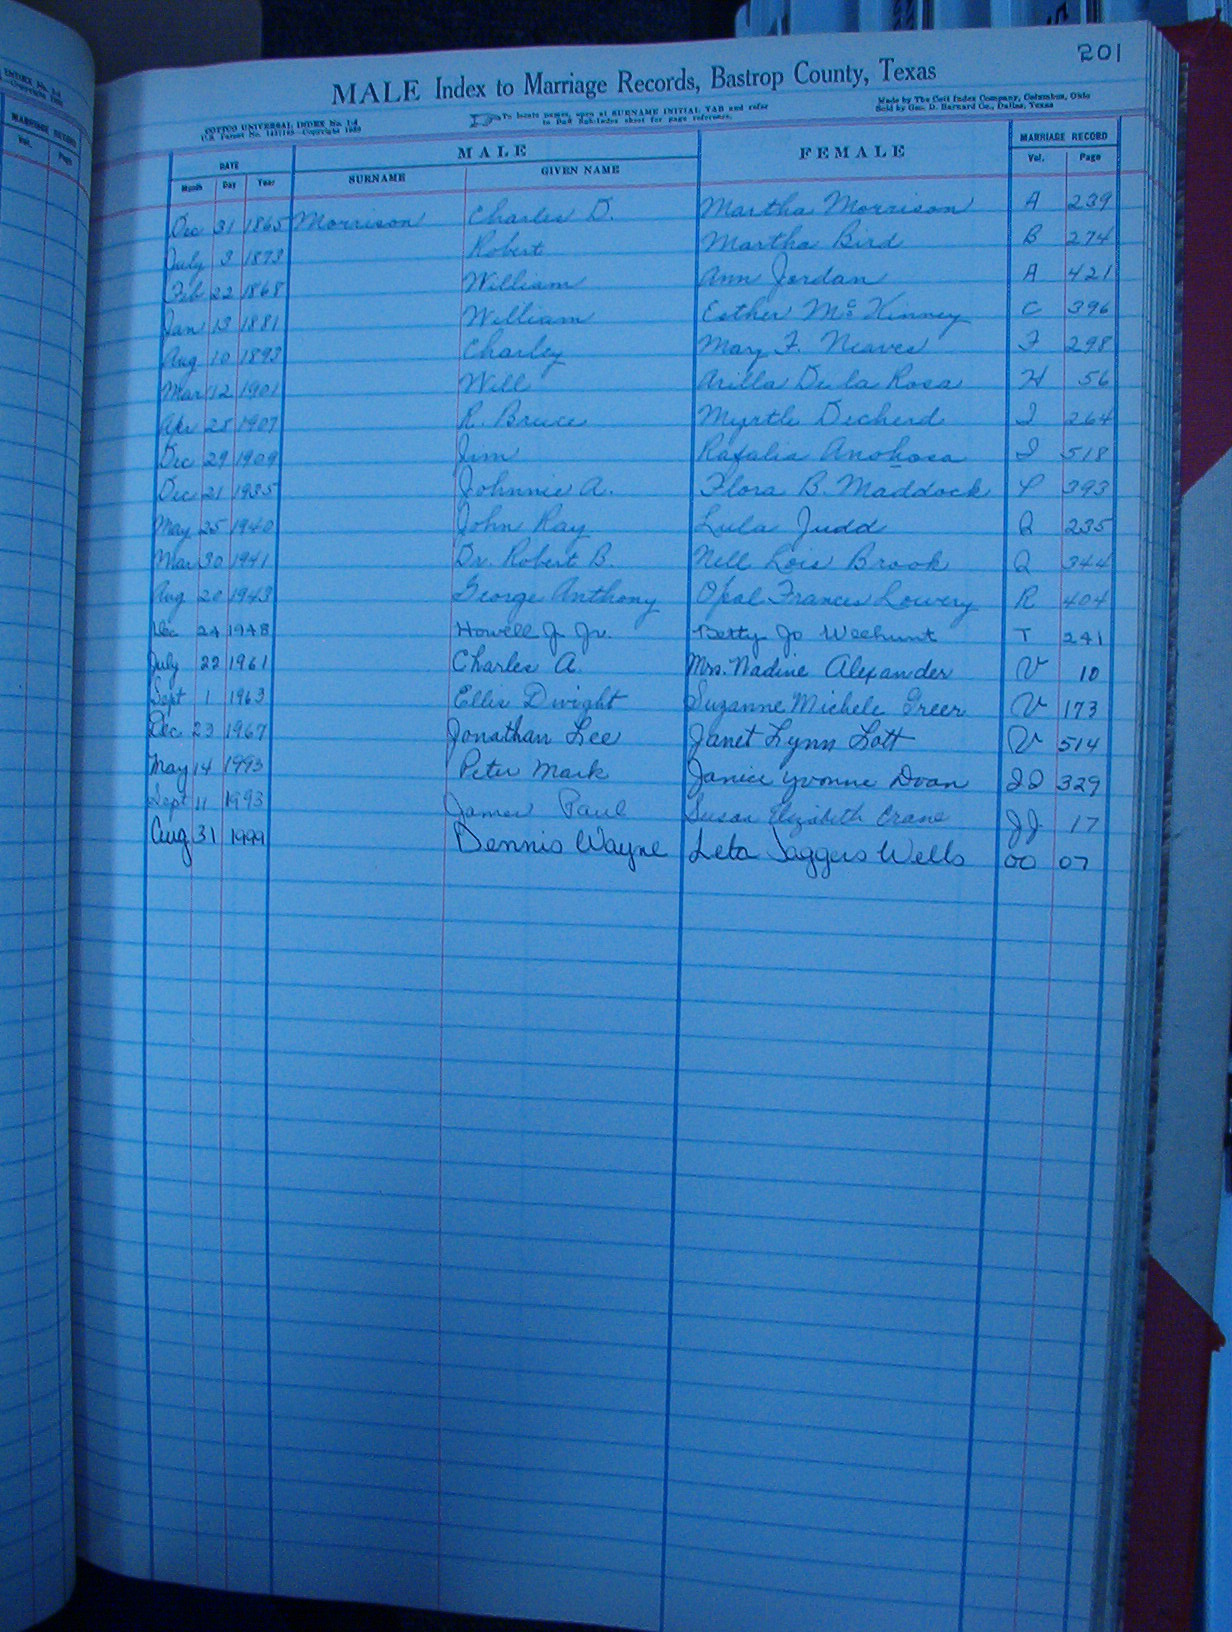 201
MALE Index to Marriage Records, Bastrop County, Texas
COTTCO UNIVERSAL INDEX No. 1-4
To locate names, open at SURNAME INITIAL TAB and refer
to Sub-Index sheet for page reference.
Made by The Cott Index Company, Columbus, Ohio
Sold by Geo. D. Barnard Co., Dallas, Texas
DATE MALE FEMALE MARRIAGE RECORD
Month Day Year SURNAME GIVEN NAME Vol. Page
Dec 31 1865 Morrison Charles D. Martha Morrison A 239
July 3 1873 Robert Martha Bird B 274
Feb 22 1868 William Ann Jordan A 421
Jan 13 1881 William Esther McKinney C 396
Aug 10 1893 Charley May F. Neaves F 298
Mar 12 1901 Will Arilla De la Rosa H 56
Apr 28 1907 R. Bruce Myrtle Decherd I 264
Dec 29 1909 Jim Rafalia I 518
Dec 21 1935 Johnnie A. Flora B. Maddock P 393
May 25 1940 John Ray Lula Judd Q 235
Mar 30 1941 Dr. Robert B. Nell Lois Brook Q 344
Aug 20 1943 George Anthony Opal Frances Lowery R 404
Dec 24 1948 Howell J. Jr. Betty Jo Weehunt T 241
July 22 1961 Charles A. Mrs. Nadine Alexander V 10
Sept 1 1963 Ellis Dwight Suzanne Michele Greer V 173
Dec 23 1967 Jonathan Lee Janet Lynn Lott V 514
May 14 1993 Peter Mark Janice Yvonne Doan II 329
Sept 11 1993 James Paul Susan Elizabeth Crane JJ 17
Aug 31 1999 Dennis Wayne Leta Jaggers Wells OO 07
MARRIAGE RECORD
Vol. Page